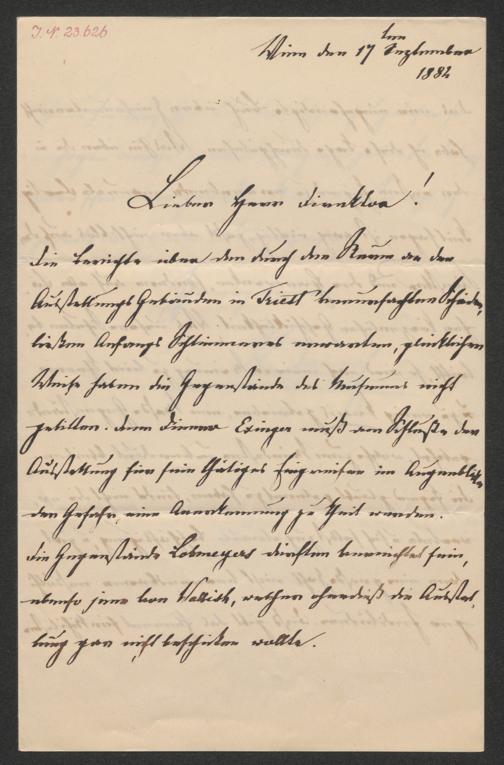 J. N. 23.626
Wien den 17ten September
1882
Lieber Herr Direktor!
die Berichte über den durch den Sturm an den
Ausstellungs Gebäuden in Triest verursachten Schaden,
ließen Anfangs Schlimmeres erwarten, glücklicher
Weise haben die Gegenstände des Museums nicht
gelitten. dem Diener Exinger muß am Schluße der
Ausstellung für sein thätiges Eingreifen im Augenblicke
der Gefahr eine Anerkennung zu Theil werden.
die Gegenstände Lobmeyers dürften vernichtet sein,
ebenso jene von Wallisch, welcher ohnedieß die Ausstel-
lung gar nicht beschicken wollte.